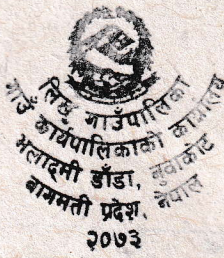 लिखु गाउँपालिका
गाउँ कार्यपालिकाको कार्यालय
भलादमी डाँडा, नुवाकोट
बागमती प्रदेश, नेपाल
२०७३